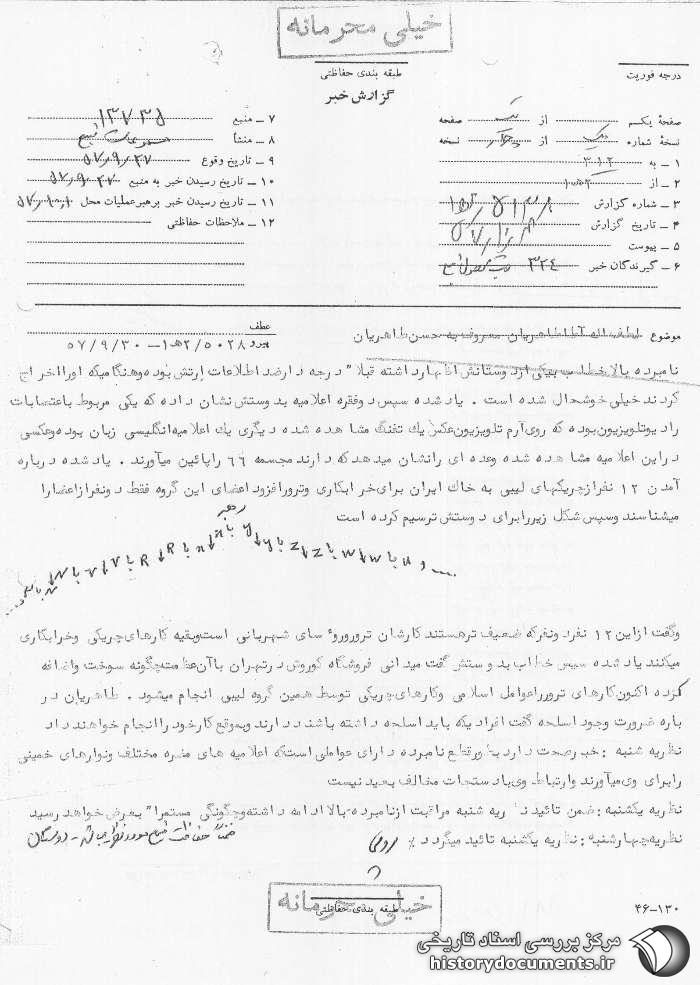 خیلی محرمانه
طبقه بندی حفاظتی
گزارش خبر
درجه فوریت
صفحهٔ یکم از یک صفحه
نسخهٔ شماره یک از نسخه
۱ ــ به ۳۱۲
۲ ــ از
۳ ــ شماره گزارش
۴ ــ تاریخ گزارش
۵ ــ پیوست
۶ ــ گیرندگان خبر ۳۲۴
۷ ــ منبع ۱۳۷۳۵
۸ ــ منشأ
۹ ــ تاریخ وقوع ۵۷٫۹٫۲۷
۱۰ ــ تاریخ رسیدن خبر به منبع ۵۷٫۹٫۲۷
۱۱ ــ تاریخ رسیدن خبر برهبر عملیات محل ۵۷٫۱۰٫۱
۱۲ ــ ملاحظات حفاظتی
موضوع لطف اله آقاطاهریان معروف به حسن طاهریان
عطف
پیرو ۲/۵۰۲۸هـ۱ ــ ۵۷/۹/۳۰
نامبرده بالا خطاب بیکی ازدوستانش اظهارداشته قبلا" درجه دارضد اطلاعات ارتش بوده وهنگامیکه اورا اخراج
کردند خیلی خوشحال شده است . یادشده سپس دوفقره اعلامیه بدوستش نشان داده که یکی مربوط باعتصابات
رادیوتلویزیون بوده که روی آرم تلویزیون عکس یك تفنگ مشاهده شده دیگری یك اعلامیه انگلیسی زبان بوده وعکسی
دراین اعلامیه مشاهده شده وعده ای رانشان میدهدکه دارند مجسمه ۶۶ راپائین میآورند . یادشده درباره
آمدن ۱۲ نفرازچریکهای لیبی به خاك ایران برای خرابکاری وترورافزود اعضای این گروه فقط دونفرازاعضارا
میشناسند وسپس شکل زیررابرای دوستش ترسیم کرده است
رهبر
وگفت ازاین ۱۲ نفردونفرکه ضعیف ترهستند کارشان ترورروؤسای شهربانی است وبقیه کارهای چریکی وخرابکاری
میکنند یادشده سپس خطاب بدوستش گفت میدانی فروشگاه کوروش درتهران باآن عظمت چگونه سوخت واضافه
کرده اکنون کارهای ترورازعوامل اسلامی وکارهای چریکی توسط همین گروه لیبی انجام میشود . طاهریان در
باره ضرورت وجود اسلحه گفت افرادیکه باید اسلحه داشته باشند دارند وبموقع کارخودراانجام خواهند داد
نظریه شنبه : خبرصحت دارد بطورقطع نامبرده دارای عواملی است که اعلامیه های مضره مختلف ونوارهای خمینی
رابرای وی میآورند وارتباط وی بادستجات مخالف بعید نیست
نظریه یکشنبه : ضمن تائید نظریه شنبه مراقبت ازنامبرده بالا ادامه داشته وچگونگی مستمرا" بعرض خواهد رسید
نظریه چهارشنبه : نظریه یکشنبه تائید میگردد٪
ضمناً حفاظت منبع مورد نظر میباشد ـ دوستان
طبقه بندی حفاظتی
خیلی محرمانه
۴۶-۱۳۰
مرکز بررسی اسناد تاریخی
historydocuments.ir